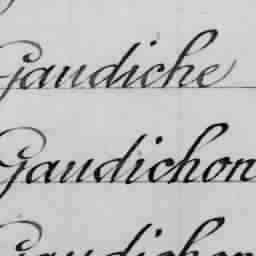 Gaudiche
Gaudichon